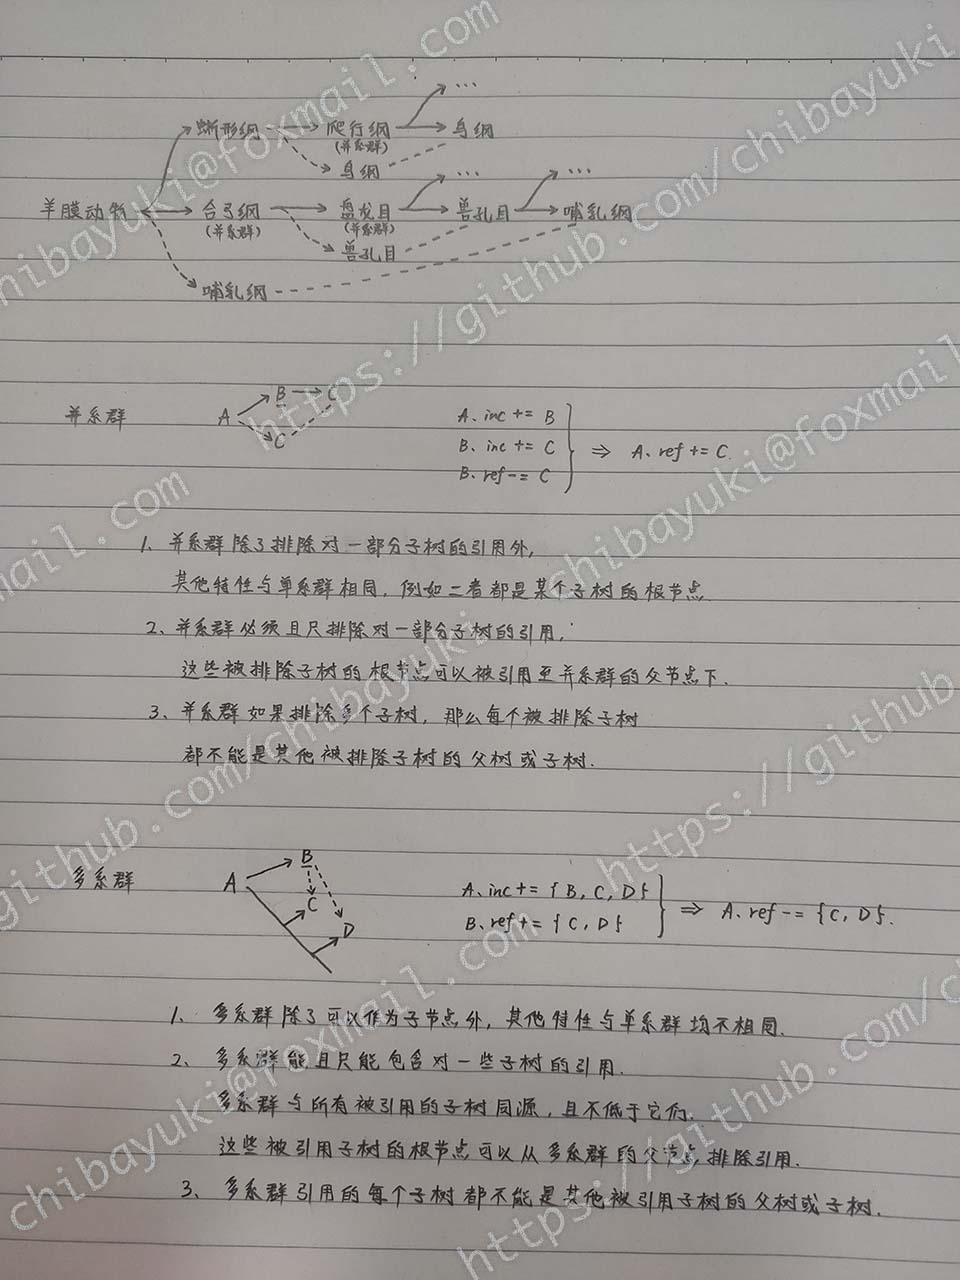 ...
蜥形纲 爬行纲 鸟纲
(并系群)
鸟纲 ... ...
羊膜动物 合弓纲 盘龙目 兽孔目 哺乳纲
(并系群) (并系群)
兽孔目
哺乳纲
并系群 A B C C
A. inc += B
B. inc += C
B. ref -= C
⇒ A. ref += C.
1、并系群除了排除对一部分子树的引用外,
其他特性与单系群相同, 例如二者都是某个子树的根节点
2、并系群必须且只排除对一部分子树的引用,
这些被排除子树的根节点可以被引用至并系群的父节点下.
3、并系群如果排除多个子树, 那么每个被排除子树
都不能是其他被排除子树的父树或子树.
多系群 A B C D
A. inc += {B, C, D}
B. ref += {C, D}
⇒ A. ref -= {C, D}.
1、多系群除了可以作为子节点外, 其他特性与单系群均不相同.
2、多系群能且只能包含对一些子树的引用.
多系群与所有被引用的子树同源, 且不低于它们.
这些被引用子树的根节点可以从多系群的父节点排除引用.
3、多系群引用的每个子树都不能是其他被引用子树的父树或子树.
chibayuki@foxmail.com
https://github.com/chibayuki